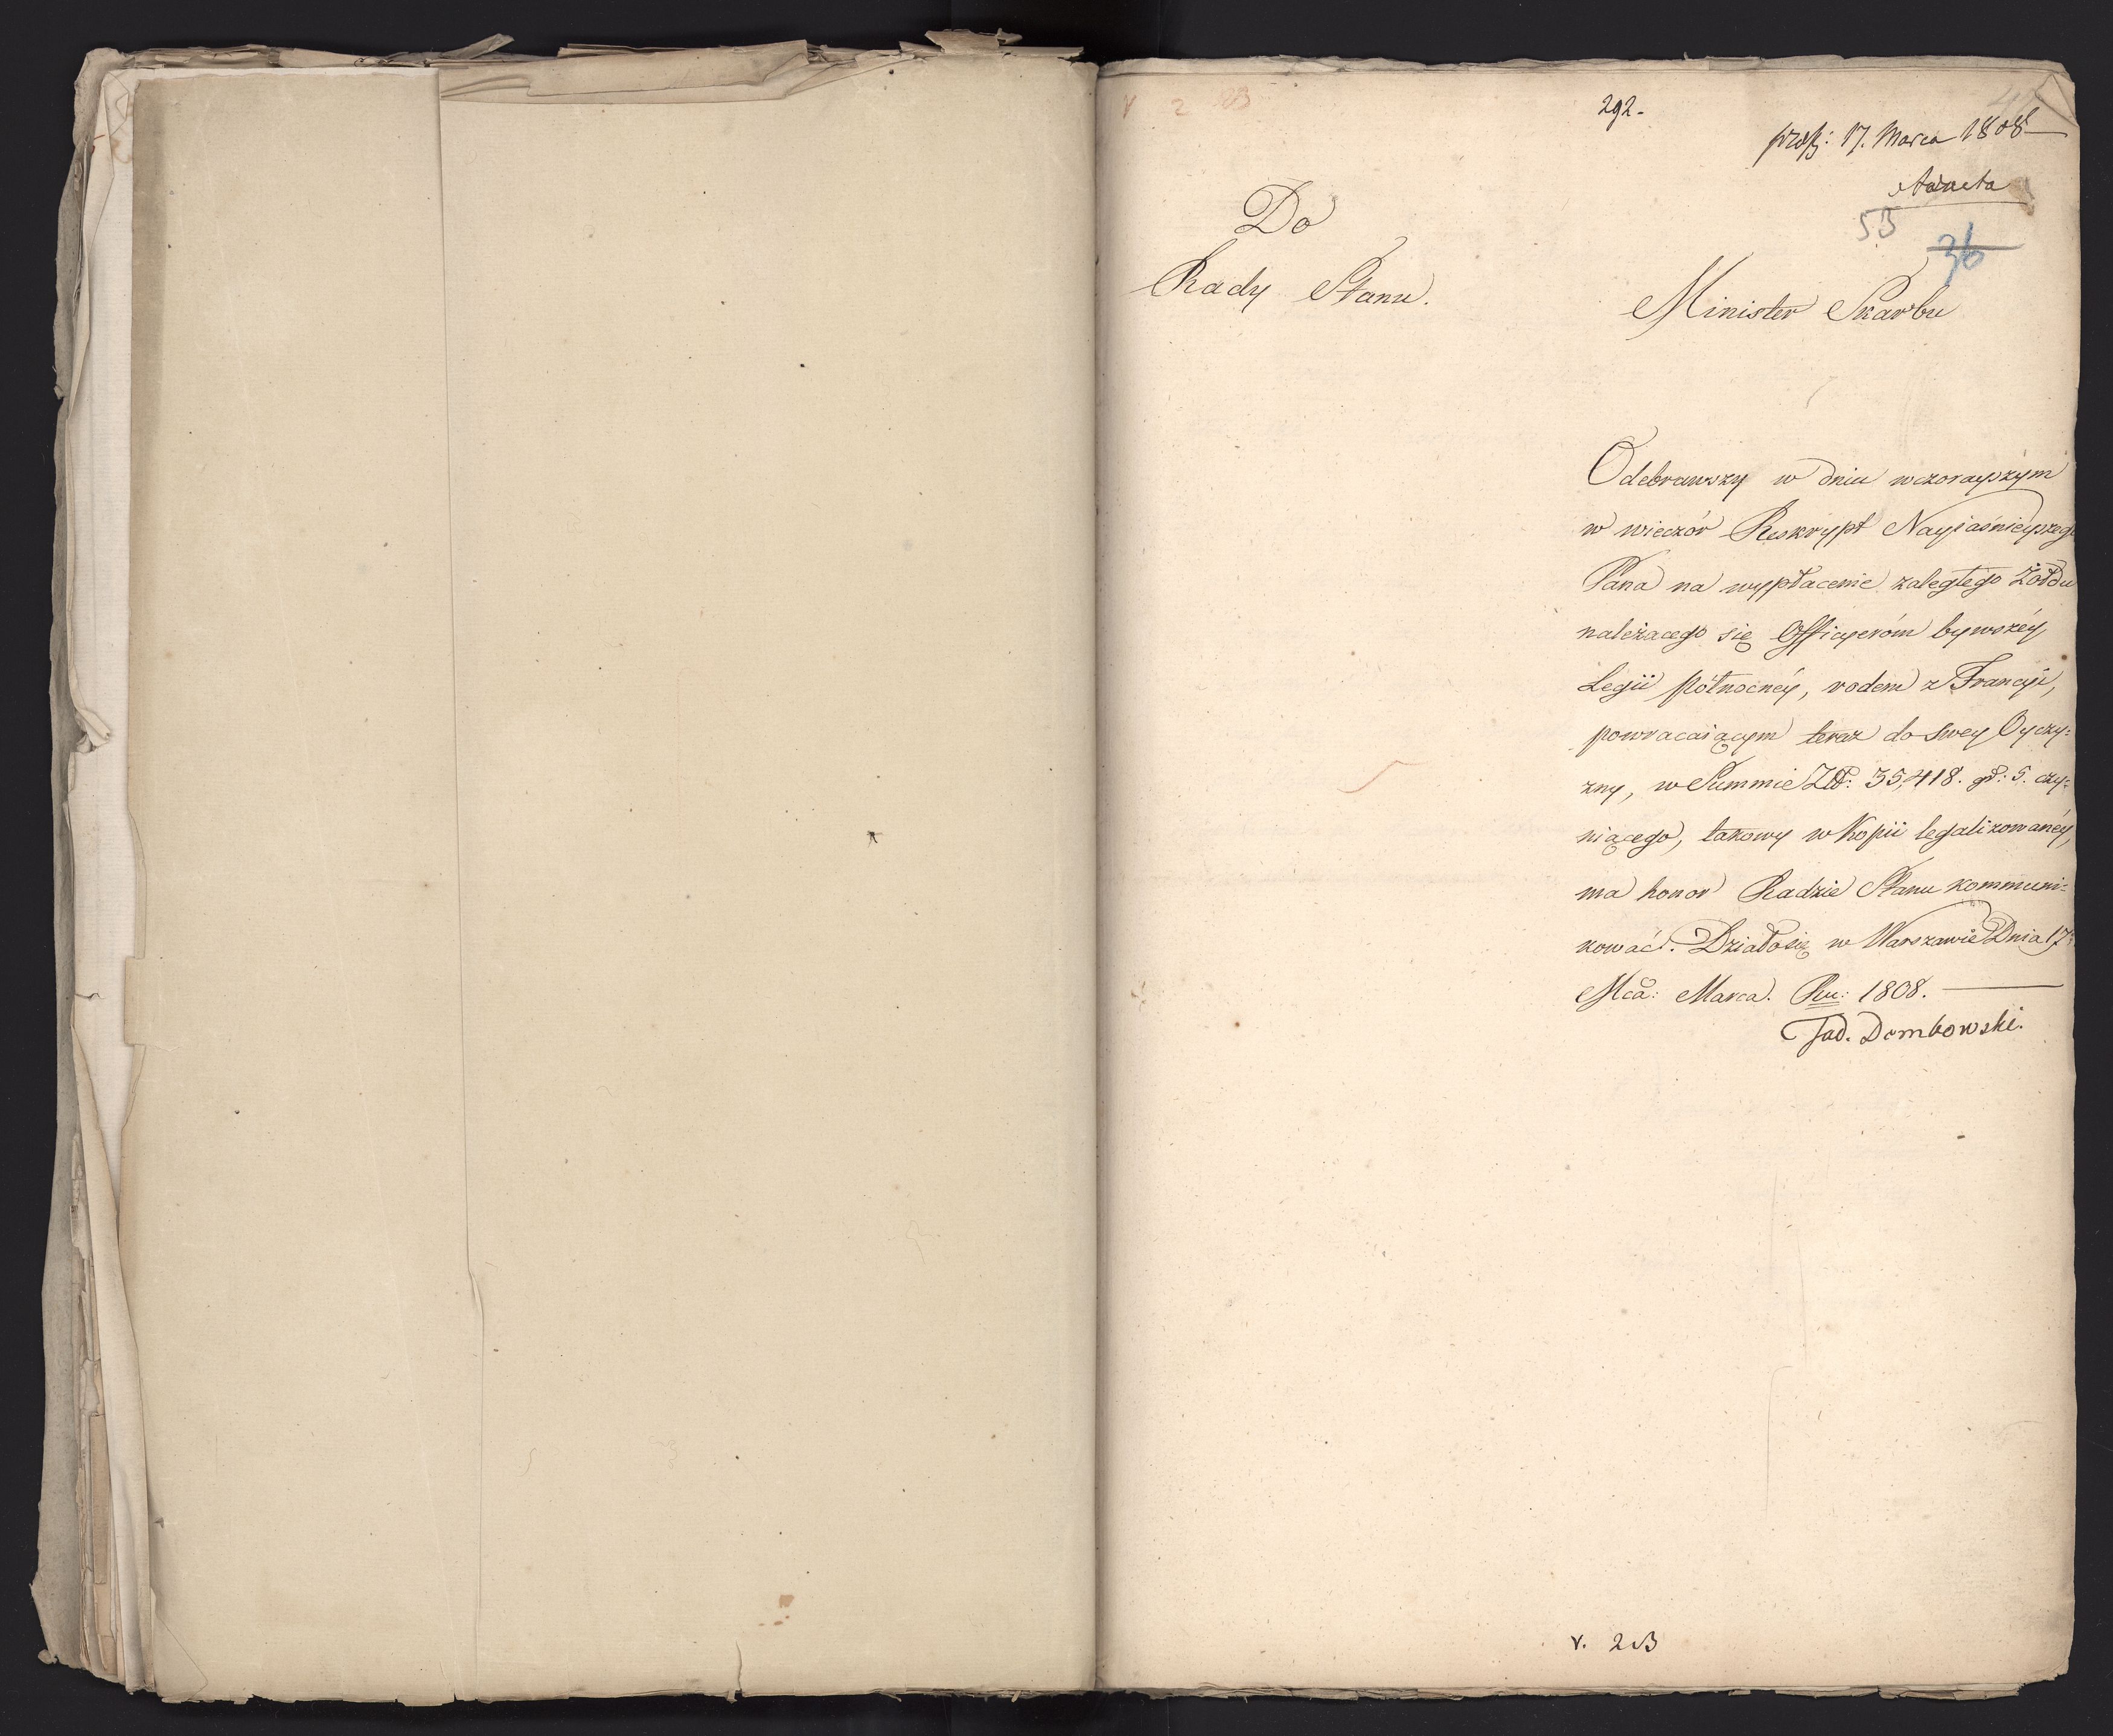 292.
præs: 17. Marca 1808
Ad acta
53
36
Do
Rady Stanu.
Minister Skarbu
Odebrawszy w dniu wczorayszym
w wieczór Reskrypt Nayiaśnieyszego
Pana na wypłacenie zaległego Żołdu
należącego się Officyeróm bywszéy
Legii północnéy, rodem z Francyi,
powracaiącym teraz do swey Oyczy=
zny, w Summie Złł: 35,418. gr: 5. czy=
niącego, takowy w Kopii legalizowanéy,
ma honor Radzie Stanu kommuni=
kować. Działo się w Warszawie Dnia 17
Mca: Marca. Ru: 1808.
Tad. Dembowski.
v. 2 B